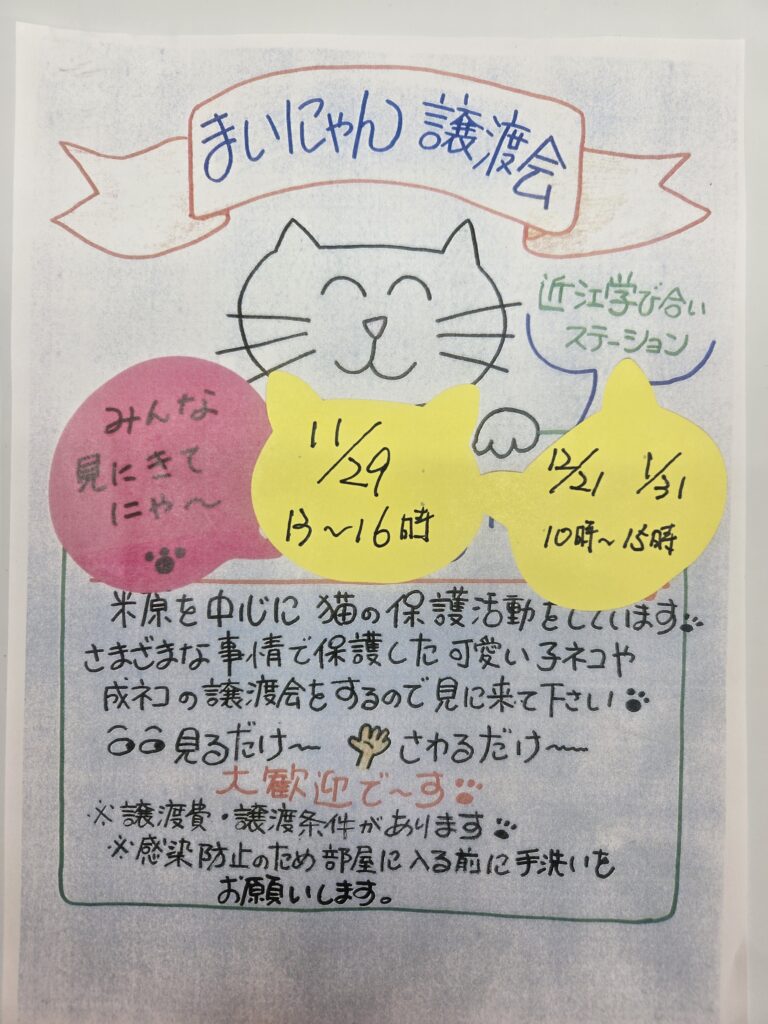 まいにゃん 譲渡会
近江学び合い
ステーション
みんな
見にきて
にゃ～
11/29
13～16時
12/21 1/31
10時～15時
米原を中心に 猫の保護活動をしています
さまざまな事情で保護した可愛い子ネコや
成ネコの譲渡会をするので見に来て下さい
見るだけ～ さわるだけ～
大歓迎で～す
※譲渡費・譲渡条件があります
※感染防止のため部屋に入る前に手洗いを
お願いします。